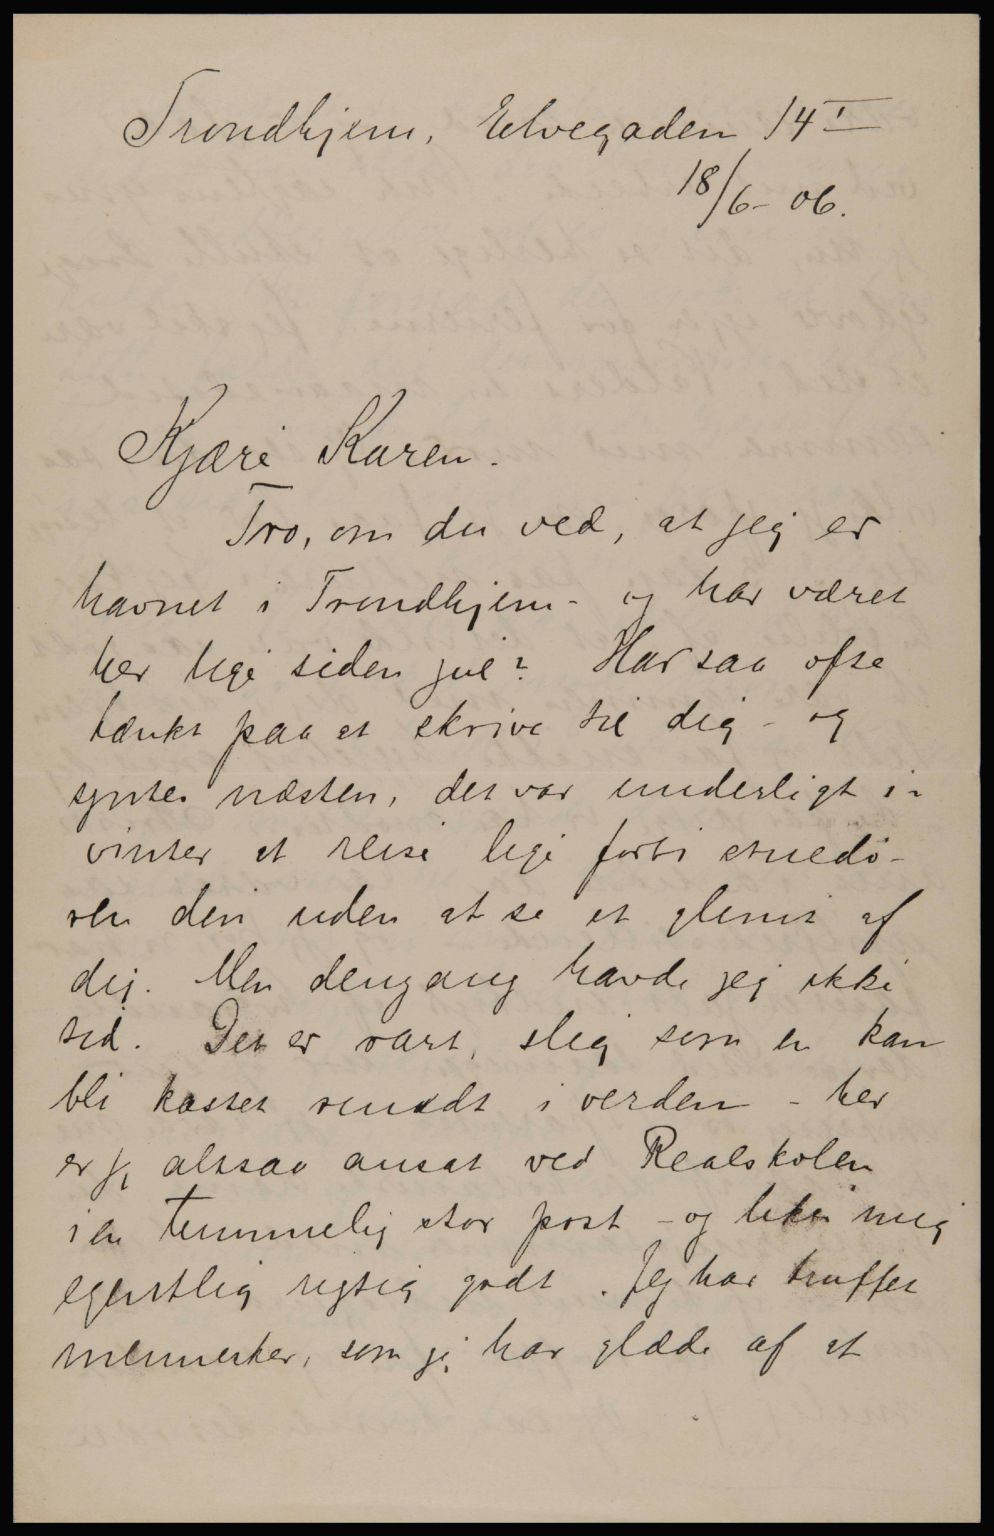 Trondhjem, Elvegaden 14 I
18/6 - 06.
Kjære Karen.
Tro, om du ved, at jeg er
havnet i Trondhjem - og har været
her lige siden jul? Har saa ofte
tænkt paa at skrive til dig - og
syntes næsten, det var underligt i-
vinter at reise lige forbi stuedø-
ren din uden at se et glimt af
dig. Men dengang havde jeg ikke
tid. Det er rart, slig som en kan
bli kastet rundt i verden - her
er jeg altsaa ansat ved Realskolen
i en temmelig stor post - og liker mig
egentlig rigtig godt. Jeg har truffet
mennesker, som jeg har glæde af at